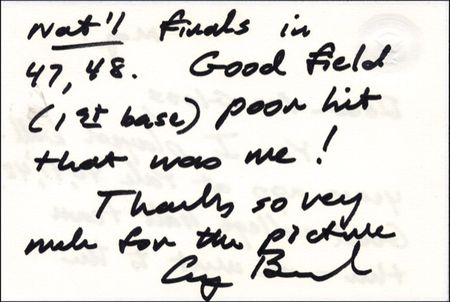 Nat'l finals in
47, 48. Good field
(1st base) poor hit
that was me!
Thanks so very
much for the picture